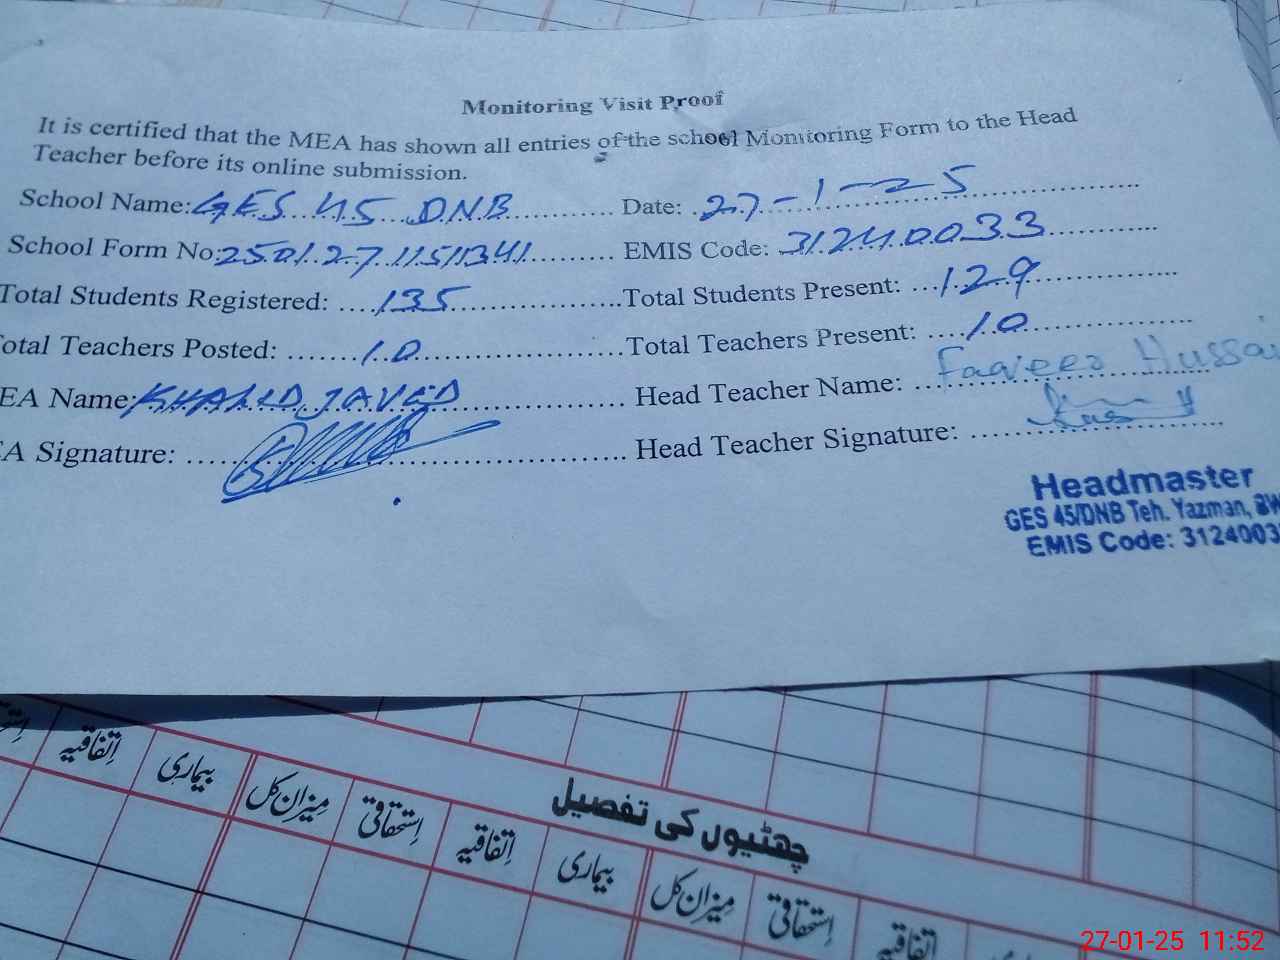 Monitoring Visit Proof
It is certified that the MEA has shown all entries of the school Monitoring Form to the Head
Teacher before its online submission.
School Name: GES 45 DNB Date: 27-1-25
School Form No: 25012711511341 EMIS Code: 31240033
Total Students Registered: 135 Total Students Present: 129
otal Teachers Posted: 10 Total Teachers Present: 10
EA Name: KHALID JAVED Head Teacher Name: Faqeer Hussai
A Signature: Head Teacher Signature:
Headmaster
GES 45/DNB Teh. Yazman, BW
EMIS Code: 3124003
چھٹیوں کی تفصیل
اِتفاقیہ بیماری میزان کل اِستحقاقی اِتفاقیہ بیماری میزان کل اِستحقاقی اِتفاقیہ
27-01-25 11:52